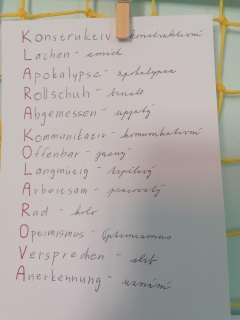 Konstruktiv - konstruktivní
Lachen - smích
Apokalypse - apokalypsa
Rollschuh - brusle
Abgemessen - upjatý
Kommunikativ - komunikativní
Offenbar - jasný
Langmütig - trpělivý
Arbeitsam - pracovitý
Rad - kolo
Optimismus - Optimismus
Versprechen - slib
Anerkennung - uznání